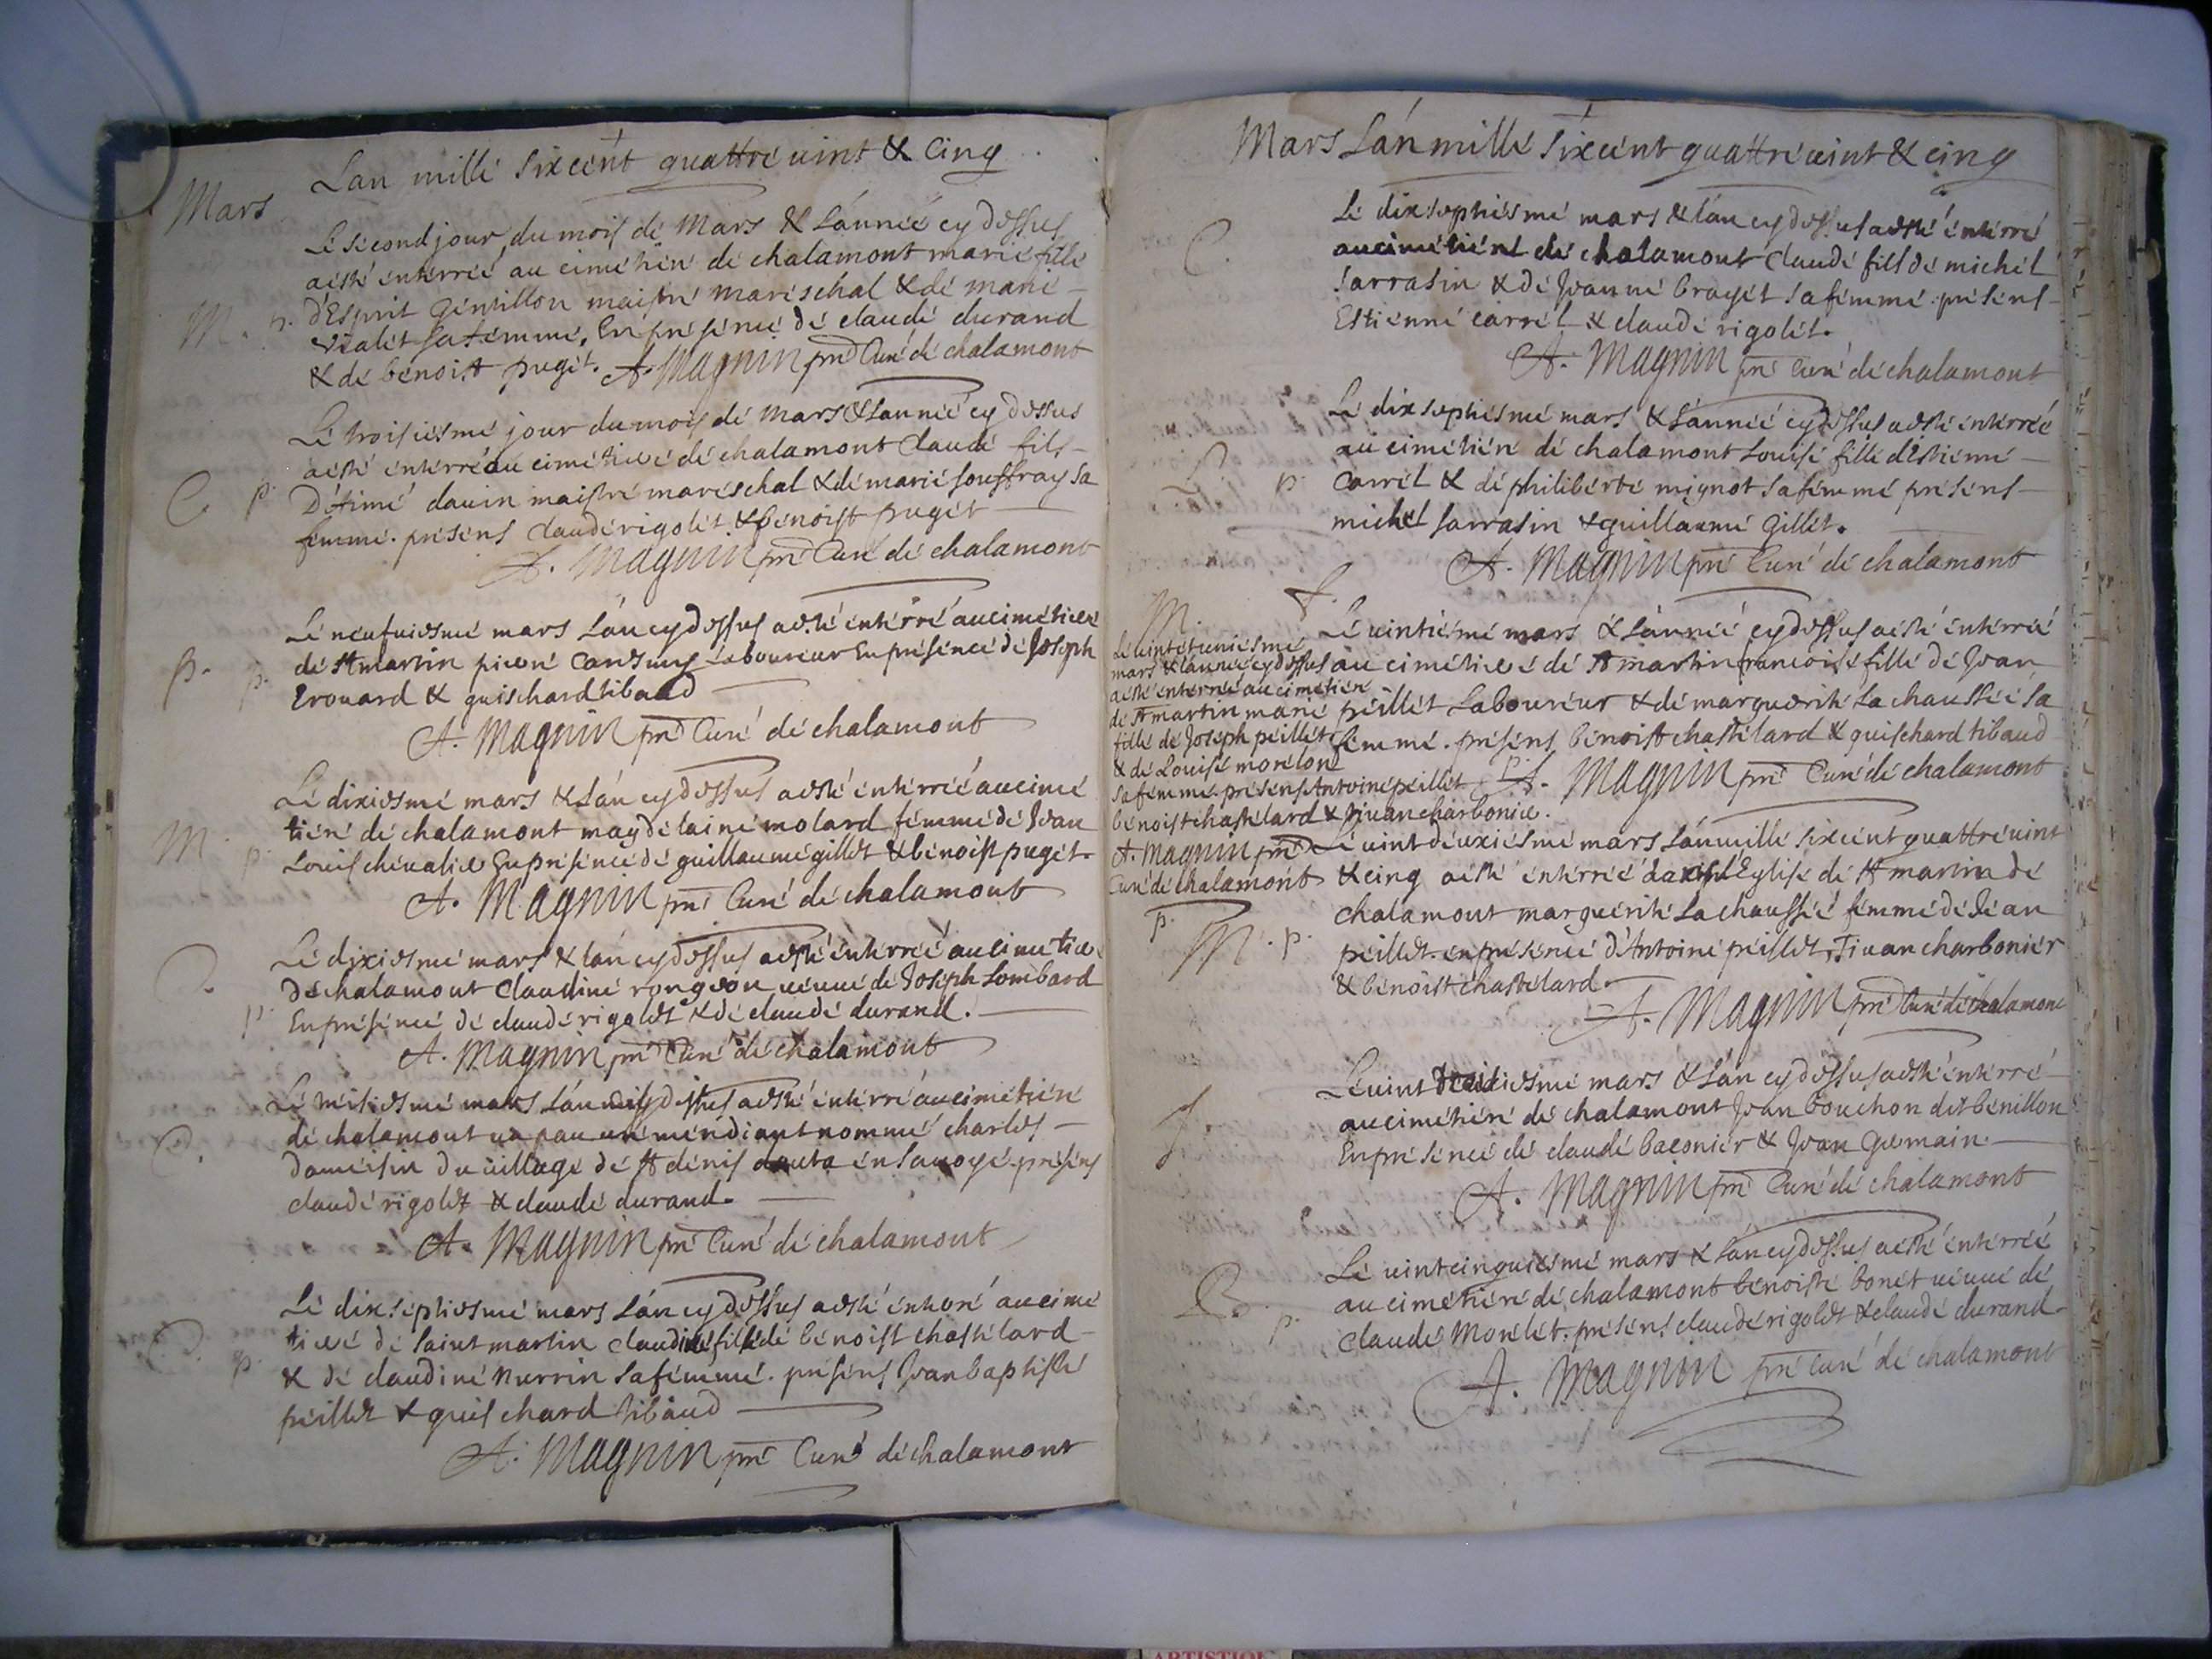 Lan mille sixcent quattre vint & Cinq
Mars
Le second jour du mois de Mars & L'année cy dessus
a esté enterrée au cimetiere de chalamont marie fille
M. p. d'Esprit Gentillon maistre mareschal & de marie
Vialet sa femme, En presence de claude durand
& de benoist puget. A. Magnin pre Curé de chalamont
Le troisiesme jour du mois de Mars & Lannée cy dessus
a esté enterré au cimetiere de chalamont Claude fils
C. p. D'Aimé dauin maistre mareschal & de marie souffray sa
femme. presens Claude rigolet & benoist puget
A. Magnin pre Curé de chalamont
Le neufuiesme mars Lan cy dessus a esté enterré au cimetiere
p. p. de st martin pierre Laboureur En presence de Joseph
Erouard & guischard tibaud
A. Magnin pre Curé de chalamont
Le dixiesme mars & Lan cy dessus a esté enterrée au cime
M. tiere de chalamont maydelaine molard femme de Jean
p. Louis cheualier En presence de guillaume gillet & benoist puget.
A. Magnin pre Curé de chalamont
Le dixiesme mars & lan cy dessus a esté enterrée au cimetiere
C. de chalamont Claudine rongeon veuue de Joseph Lombard
p. En presence de claude rigolet & de claude durand.
A. Magnin pre Curé de chalamont
Le mars Lan cy dessus a esté enterré au cimetiere
C. de chalamont un pauure mendiant nommé charles
du village de st denis en sauoye. presens
claude rigolet & claude durand.
A. Magnin pre Curé de chalamont
Le dix septiesme mars Lan cy dessus a esté enterré au cime
C. tiere de Saint martin claudine fille de benoist chastelard
p. & de claudine Nurrin sa femme. presens Jean baptiste
peillet & guischard tibaud
A. Magnin pre Curé de chalamont
Mars Lan mille sixcent quattre vint & cinq
Le dix septiesme mars & lan cy dessus a esté enterré
C. au cimetiere de chalamont Claude fils de michel
Sarrasin & de Jeanne brayet sa femme. presens
Estienne carrel & claude rigolet.
A. Magnin pre Curé de chalamont
Le dix septiesme mars & Lannée cy dessus a esté enterrée
au cimetiere de chalamont Louise fille d'Estienne
L. p. Carrel & de philiberte mignot sa femme presens
michel sarrasin & guillaume Gillet.
A. Magnin pre Curé de chalamont
f. Le vintiesme mars & Lannée cy dessus a esté enterrée
au cimetiere de st martin francoise fille de Jean
peillet Laboureur & de marguerite La chaussée sa
femme. presens benoist chastelard & guischard tibaud
p. A. Magnin pre Curé de chalamont
M.
Le vint et uniesme
mars & lannée cy dessus
a esté enterrée au cimetiere
de st martin marie
fille de Joseph peillet
& de Louise morelon
sa femme presens Antoine peillet
benoist chastelard & Viuan charbonier.
A. Magnin pre
Curé de chalamont
p.
Le vint deuxiesme mars Lan mille sixcent quattre vint
& cinq a esté enterrée dans L'Eglise de st martin de
chalamont marguerite La chaussée femme de Jean
M. p. peillet. en presence d'Antoine peillet, Viuan charbonier
& benoist chastelard.
A. Magnin pre Curé de chalamont
Le vint mars & Lan cy dessus a esté enterré
J. au cimetiere de chalamont Jean bouchon dit benillon
En presence de claude baconier & Jean Germain.
A. Magnin pre Curé de chalamont
Le vint cinquiesme mars & Lan cy dessus a esté enterrée
B. au cimetiere de chalamont benoiste bonet veuue de
p. Claude Morelet. presens claude rigolet & claude durand
A. Magnin pre Curé de chalamont